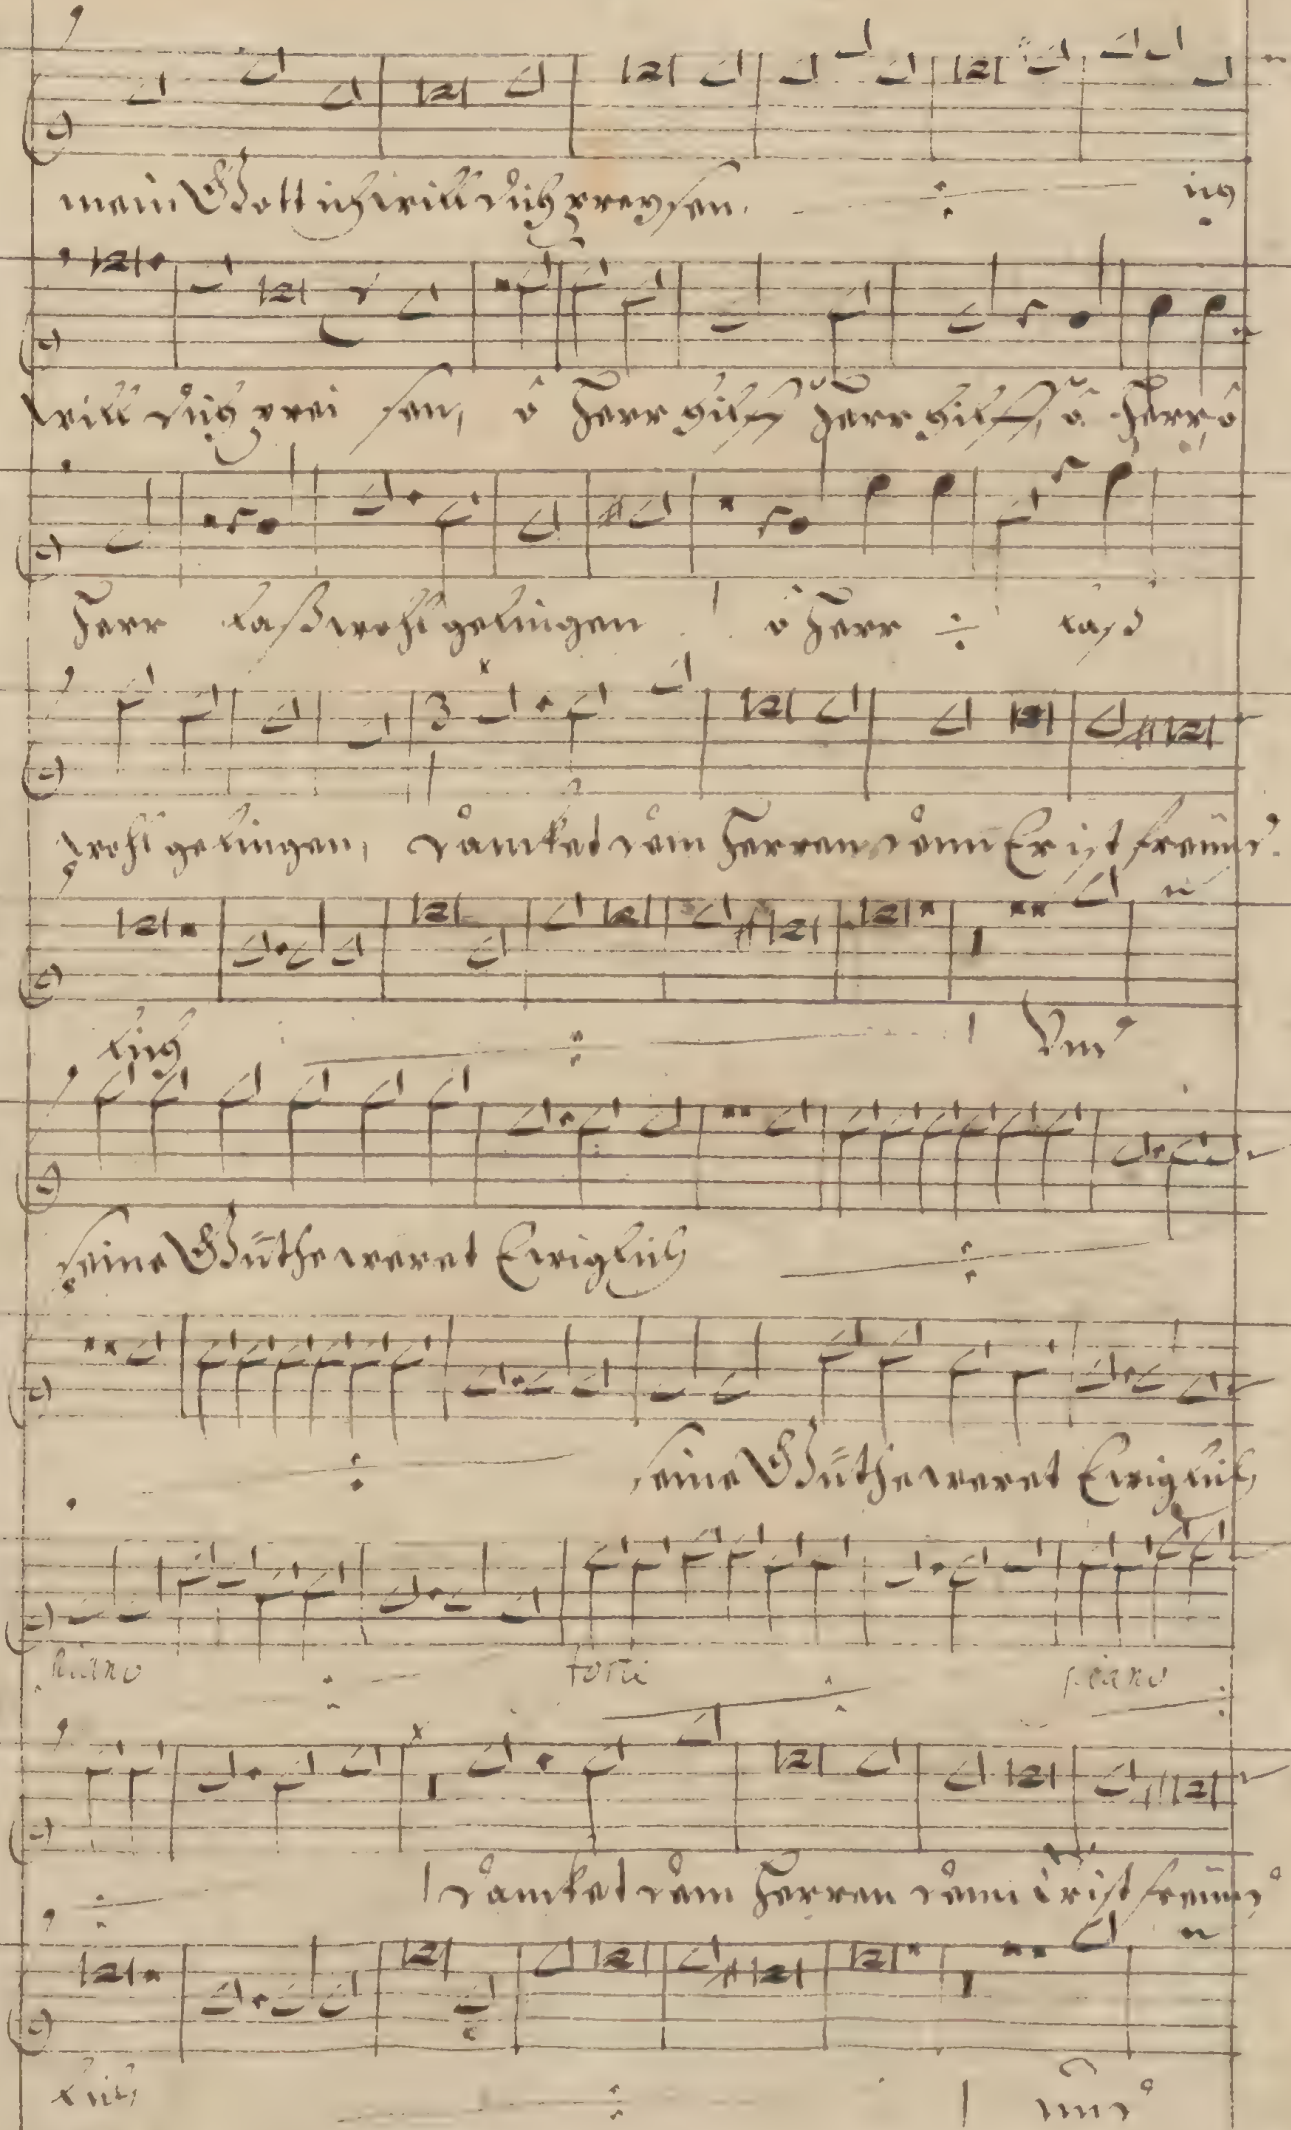 mein Gott ich will dich preysen. ÷ ich
will dich prei sen, ô Herr hilff Herr hilff, ô Herr, ô
Herr laß wohl gelingen ô Herr ÷ laß
wohl gelingen, danket dem Herren denn Er ist freünd
lich ÷ Und
seine Güthe weret Ewiglich ÷
÷ seine Güthe weret Ewiglich
piano ÷ forte ÷ piano ÷
÷ danket dem Herren denn er ist freünd
lich ÷ und